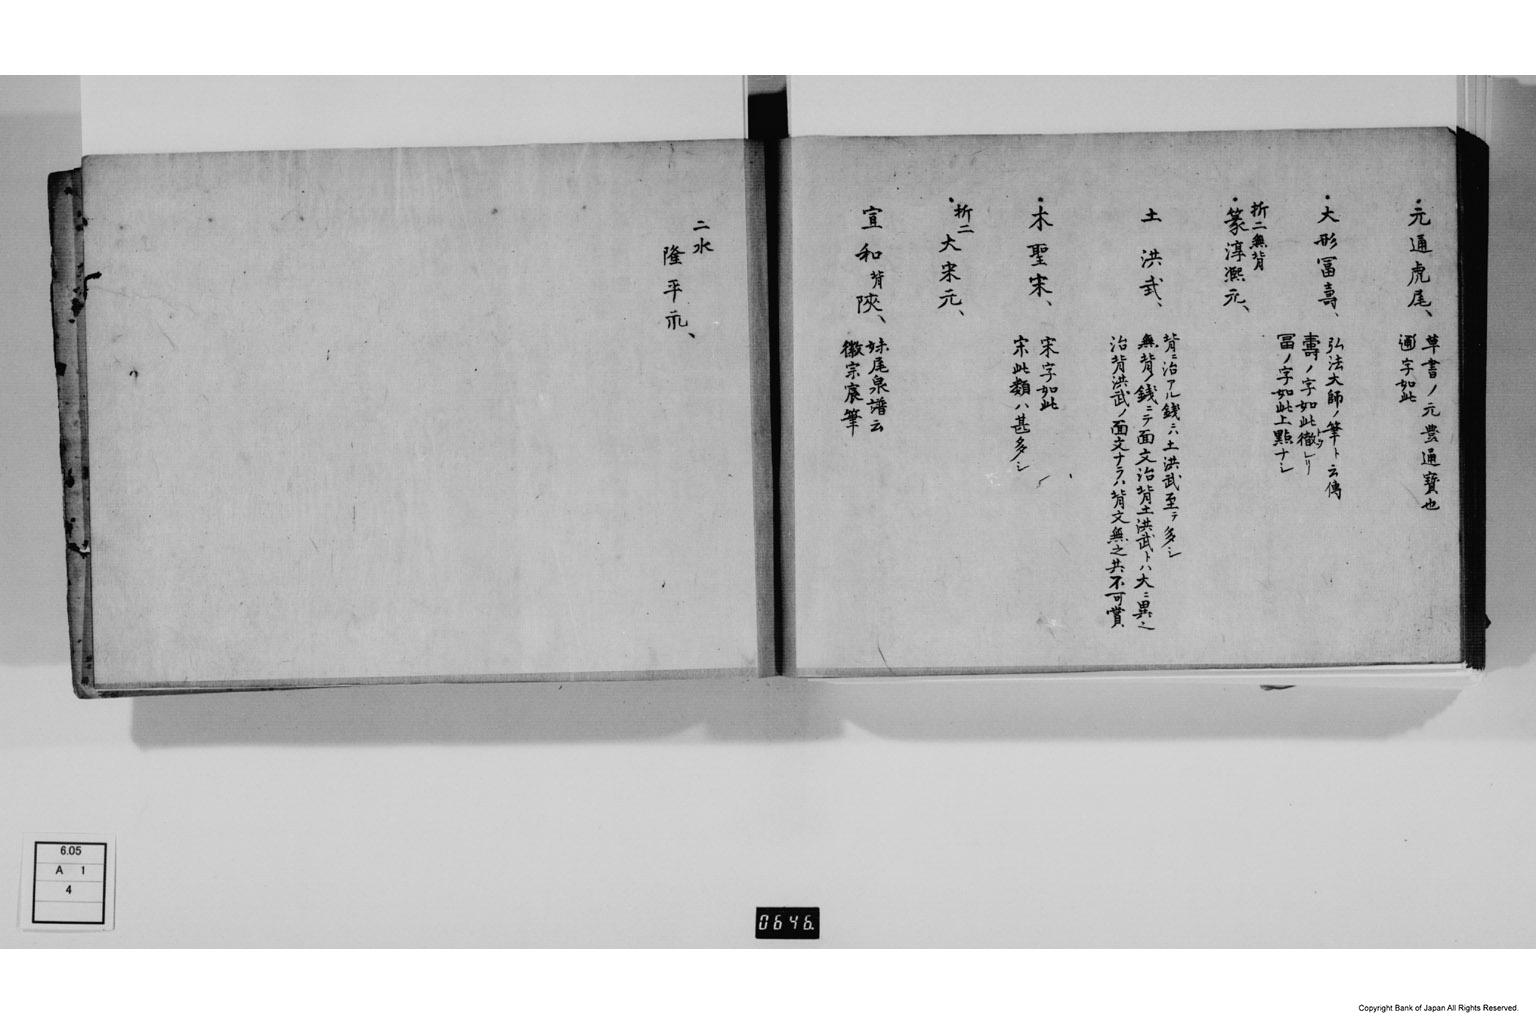 元通虎尾、
草書ノ元豊通寳也
通字如此
大形冨壽、
弘法大師ノ筆ト云傳
壽ノ字如此
冨ノ字如此上點ナシ
折二無背
篆淳熈元、
土洪武、
背ニ治アル銭ハ土洪武至テ多シ
無背ノ銭ニテ面文治背土洪武トハ大ニ異之
治背洪武ノ面文ナラハ背文無之共不可賞
木聖宋、
宋字如此
宋此類ハ甚多シ
折二
大宋元、
宣和背陝、
妹尾泉譜云
徽宗宸筆
二水
隆平永、
6.05
A 1
4
0646.
Copyright Bank of Japan All Rights Reserved.